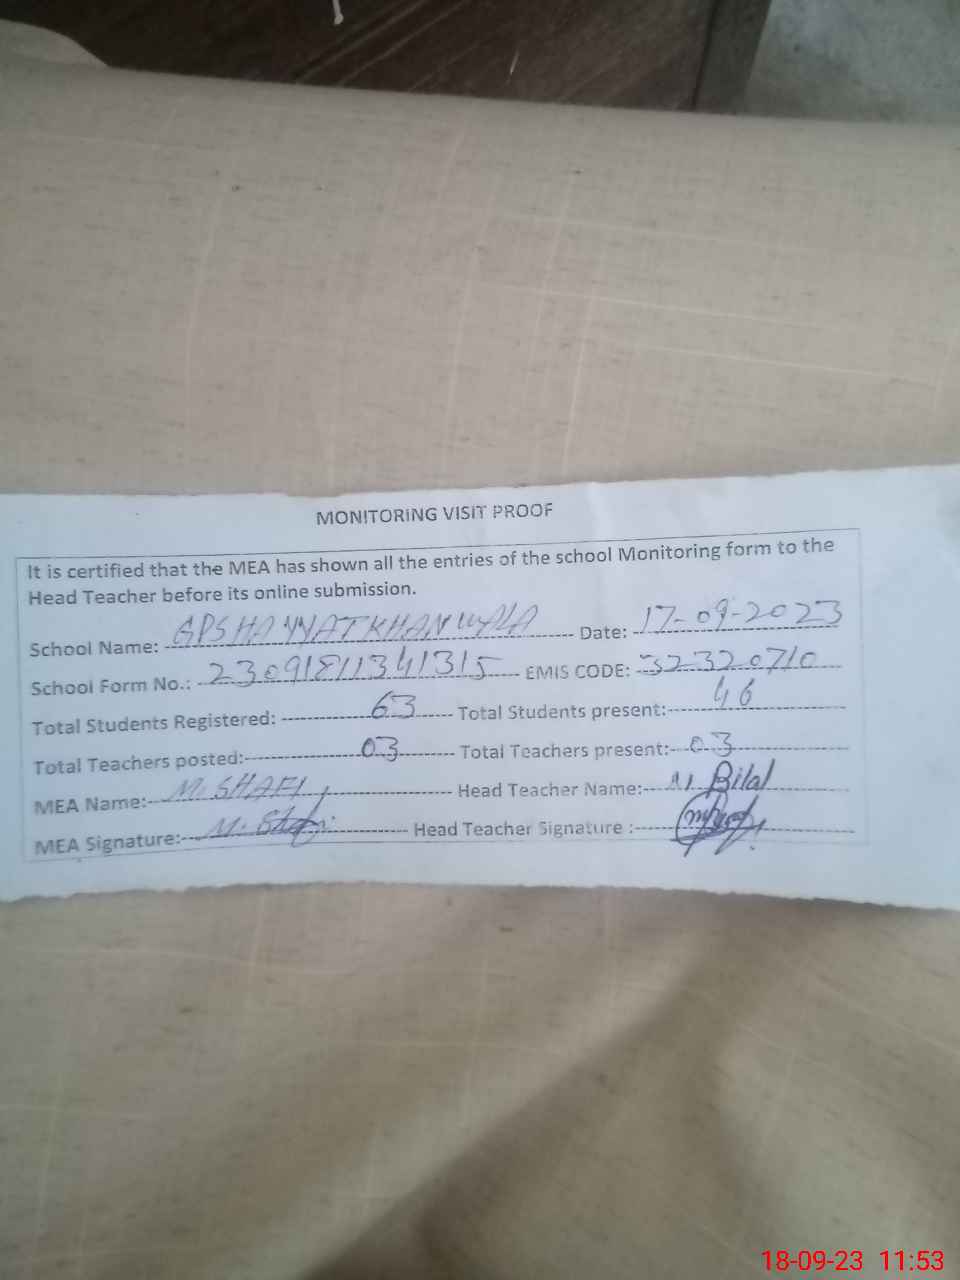 MONITORING VISIT PROOF
It is certified that the MEA has shown all the entries of the school Monitoring form to the
Head Teacher before its online submission.
School Name: GPS HAYYAT KHAN WALA Date: 17-09-2023
School Form No.: 23091811341315 EMIS CODE: 32320710
Total Students Registered: 63 Total Students present: 46
Total Teachers posted: 03 Total Teachers present: 03
MEA Name: M. SHAFI Head Teacher Name: M Bilal
MEA Signature: M. Shafi Head Teacher Signature :
18-09-23 11:53